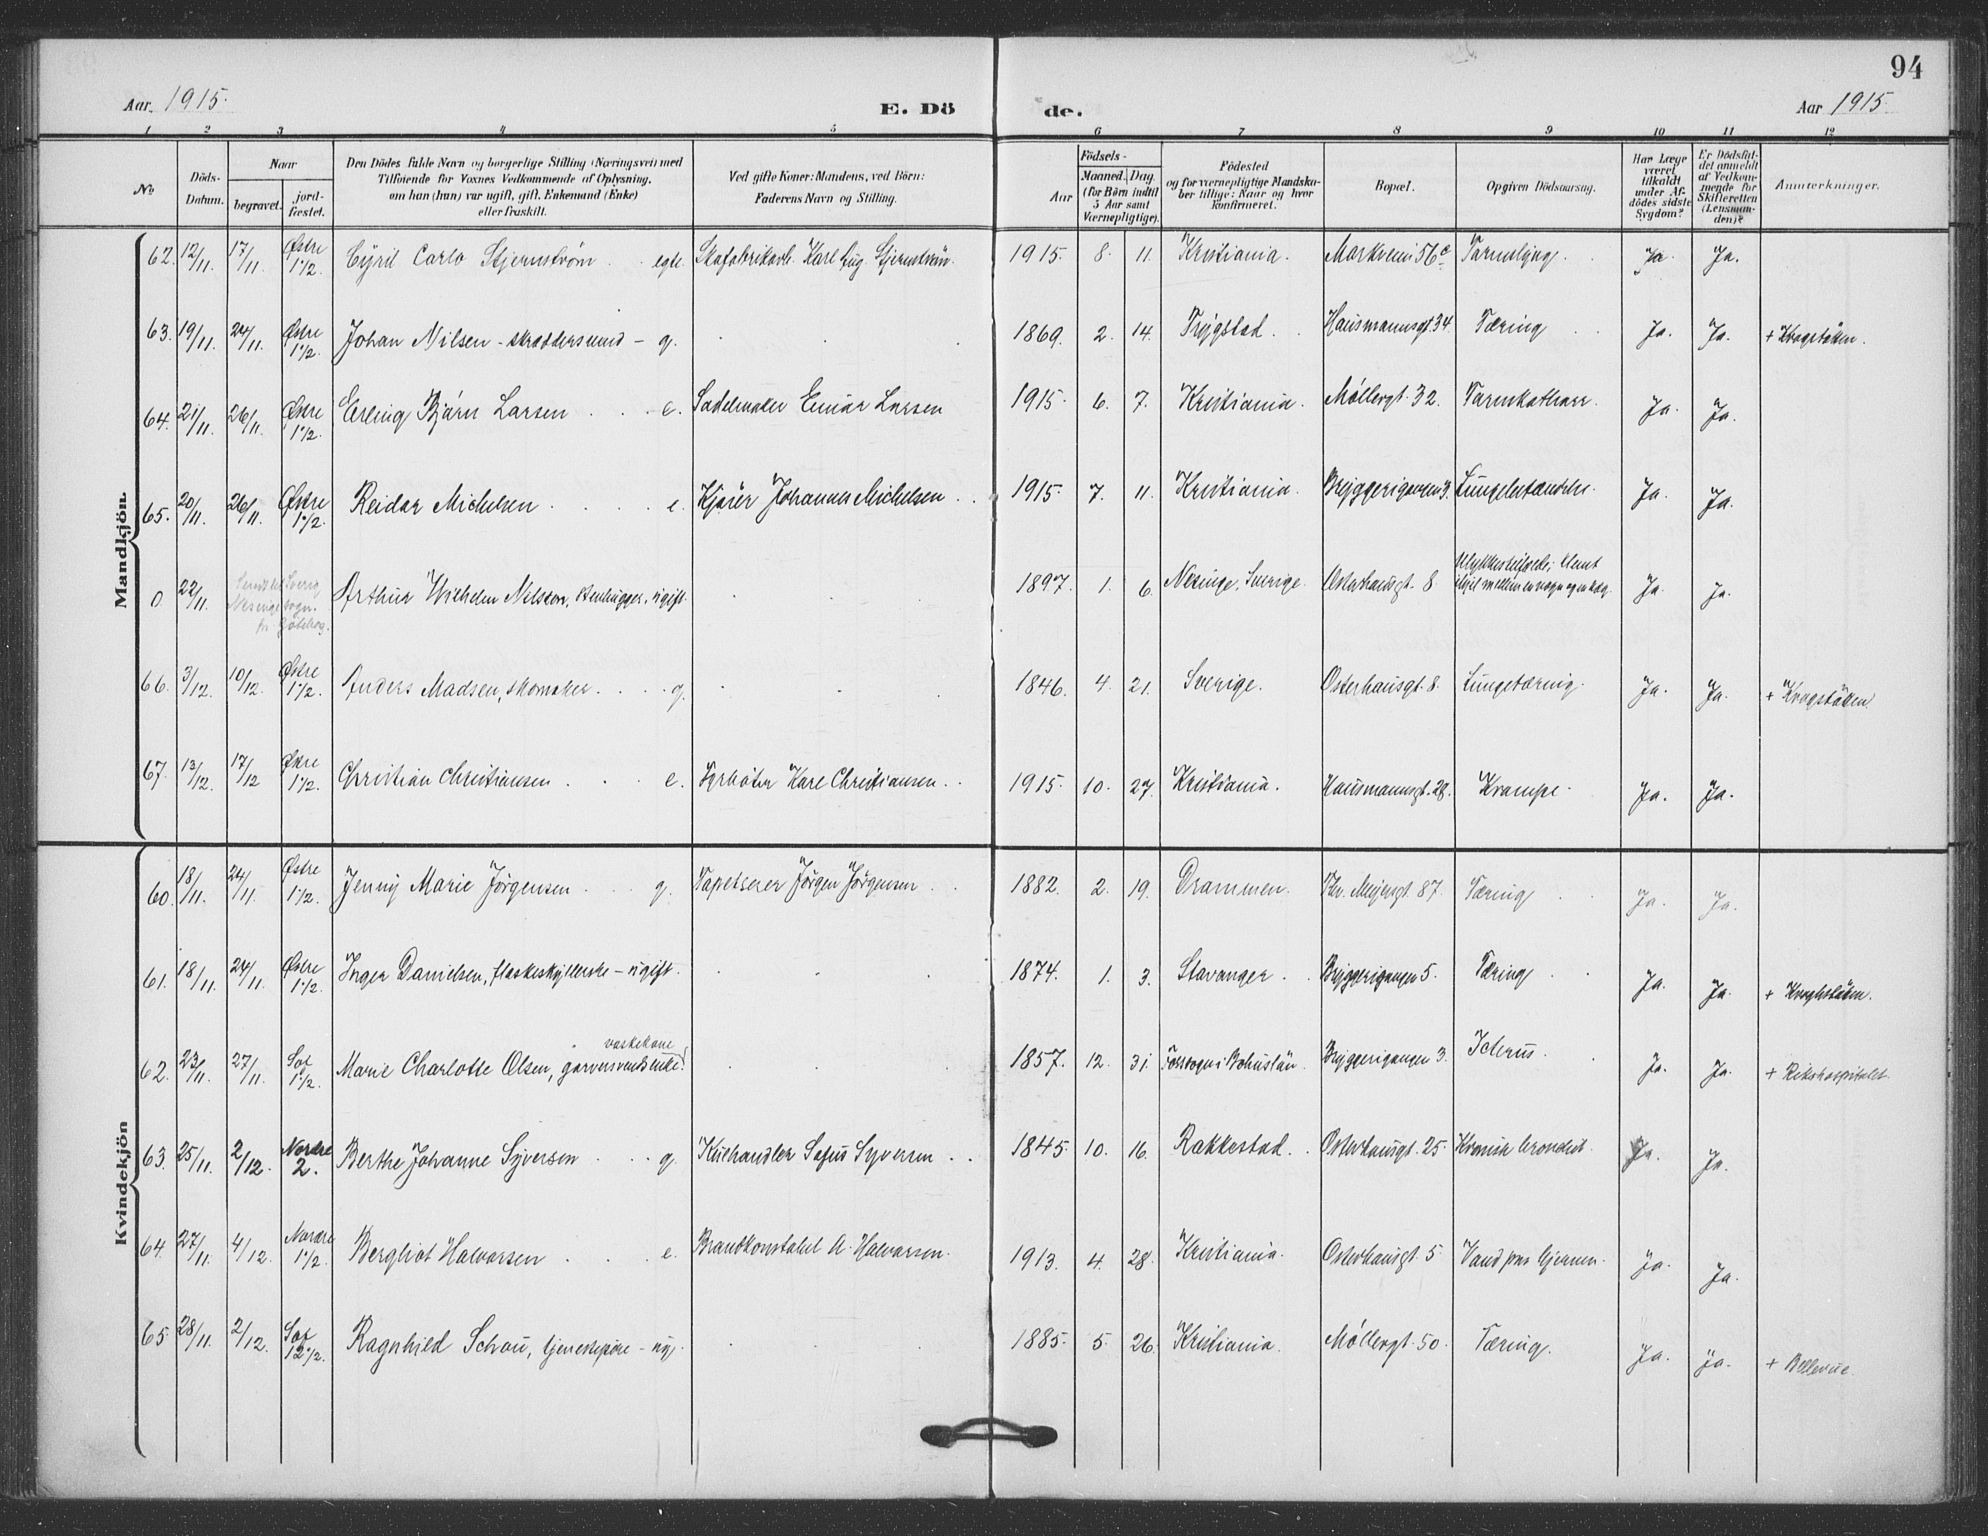 94
Aar. 1915. E. Dö de. Aar 1915
1 2 3 4 5 6 7 8 9 10 11 12
No
Döds-Datum.
Naar
begravet.
jord-fæstet.
Den Dödes fulde Navn og borgerlige Stilling (Næringsvei) med
Tilföiende för Voxnes Vedkommende af Oplysning,
om han (hun) var ugift, gift, Enkemand (Enke)
eller fraskilt.
Ved gifte Koner: Mandens, ved Börn:
Faderens Navn og Stilling.
Födsels-
Aar
Maaned. Dag
(for Börn indtil
5 Aar samt
Værnepligtige).
Födested
og for værnepligtige Mandska-
ber tillige: Naar og hvor
konfirmeret.
Bopæl.
Opgiven Dödsaarsag.
Har Læge
været
tilkaldt
under Af-
dödes sidste
Sygdom?
Er Dödsfal-
det anmeldt
af Vedkom-
mende for
Skifteretten
(Lensman-
den)?
Anmerkninger.
Mandkjön.
62. 12/11. 17/11. Østre 1½. Cyril Carlo Stjernström . . egte. Karl Eug. Stjernström. 1915. 8. 11. Kristiania. Markveien 56c Tarmslyng. Ja. Ja.
63. 19/11. 24/11. Østre 1½. Johan Nilsen - skræddersvend - g. 1869. 2. 14. Trygstad. Hausmannsgt. 34. Tæring Ja. Ja. + Krogstötten.
64. 21/11. 26/11. Østre 1½. Erling Bjørn Larsen . . e. Sadelmaker Einar Larsen 1915. 6. 7. Kristiania. Møllergt. 32. Tarmkatharr. Ja. Ja.
65. 20/11. 26/11. Østre 1½. Reidar Michelsen . . . e. Kjører Johannes Michelsen . . 1915. 7. 11. Kristiania. Bryggerigangen 3. Lungebetændelse. Ja. Ja.
0 22/11. Sendt til Sverig Nesinge sogn. Göteborg. Arthur Wilhelm Nilsson, stenhugger, ugift 1897. 1. 6. Nesinge, Sverige. Osterhausgt. 8 Ulykkestilfælde; klemt ihjel mellem en vogn og en Ja. Ja.
66. 3/12. 10/12. Østre 1½. Anders Madsen, skomaker. . . . g. 1846. 4. 21. Sverige. Osterhausgt. 8. Lungetæring. Ja. Ja. + Krogstötten
67. 13/12. 17/12 Østre 1½. Christian Christiansen . . e. Fyrbøter Kare Christiansen . . 1915. 10. 27. Kristiania. Hausmannsgt. 28. Krampe. Ja. Ja.
Kvindekjön
60. 18/11. 24/11. Østre 1½. Jenny Marie Jørgensen . . g. Tapetserer Jørgen Jørgensen . . 1882. 2. 19. Drammen. Thv. Meyersgt. 87. Tæring Ja. Ja.
61. 18/11. 24/11. Østre 1½. Inger Danielsen, flaskeskyllerske - ugift. 1874. 1. 3. Stavanger. Bryggerigangen 5. Tæring Ja. Ja. + Kroghstötten.
62. 23/11. 27/11. Sof. 1½. Marie Charlotte Olsen, vaskekone garversvendsenke. 1857. 12. 31. Bohuslän. Bryggerigangen 3. Icterus. Ja. Ja. + Rikshospitalet.
63. 25/11. 2/12. Nordre 2. Berthe Johanne Syversen . . g. Sofus Syversen . . 1845. 10. 16. Rakkestad. Osterhausgt. 25. Kronisk bronchit. Ja. Ja.
64. 27/11. 4/12. Nordre 1½. Bergliot Halvorsen . . e. Brandkonstabel A. Halvorsen. 1913. 4. 28. Kristiania. Osterhausgt. 5 Vand paa hjernen. Ja. Ja.
65. 28/11. 2/12. Sof. 12½. Ragnhild Schou, tjenestepike - ug. 1885. 5. 26. Kristiania. Møllergt. 50. Tæring. Ja. Ja. + Bellevue.